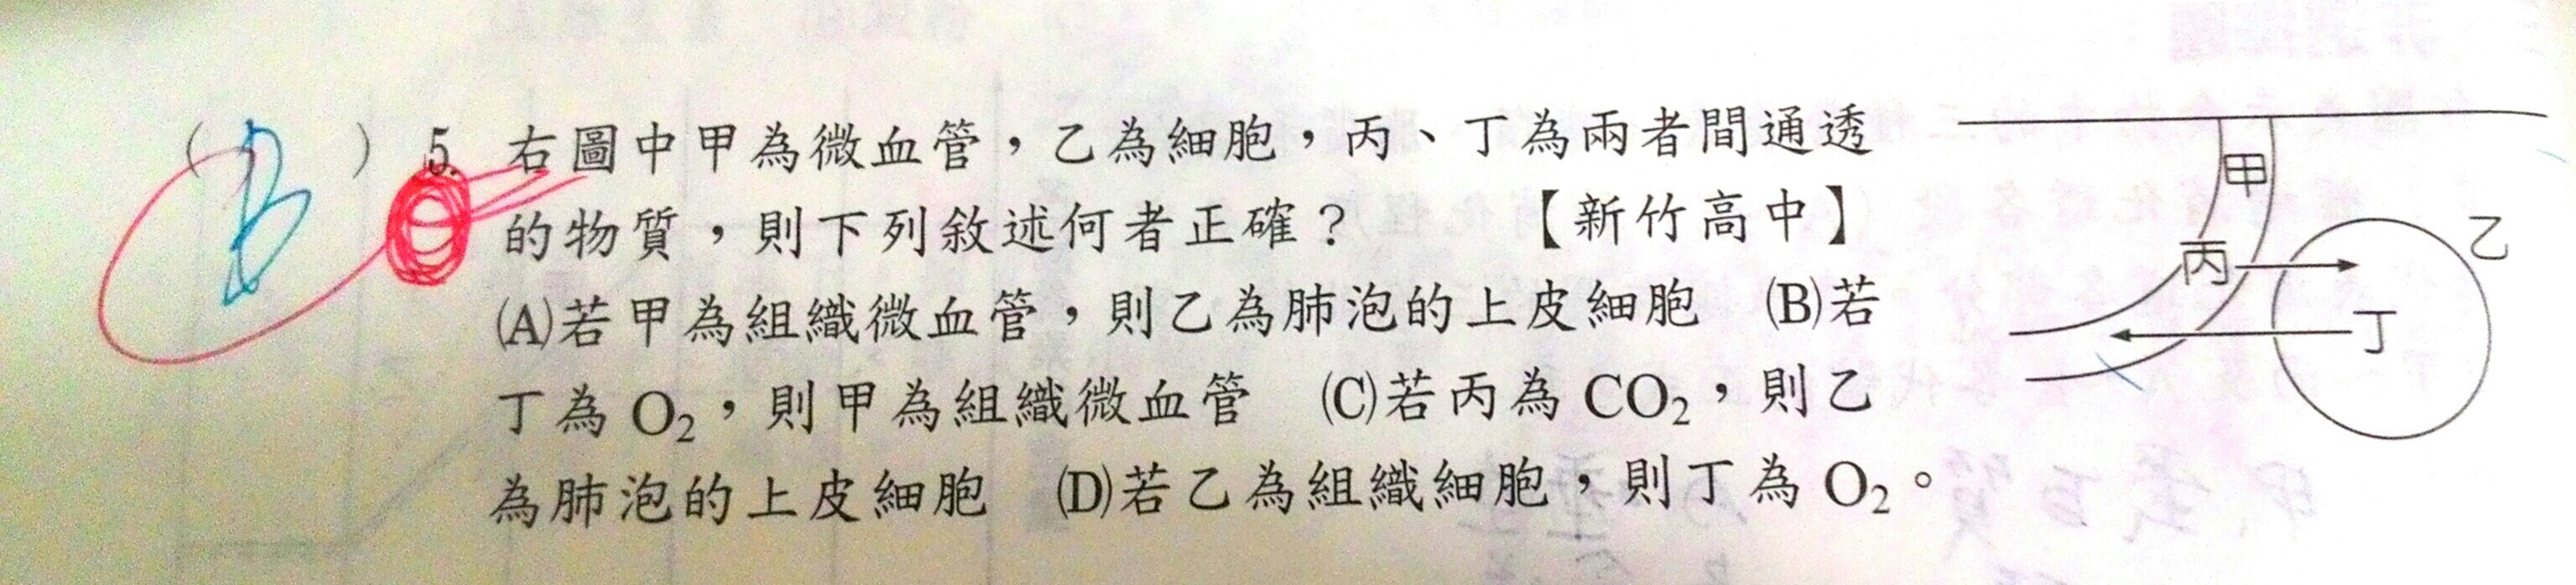 ( B ) 5. 右圖中甲為微血管，乙為細胞，丙、丁為兩者間通透
的物質，則下列敘述何者正確？ 【新竹高中】
(A)若甲為組織微血管，則乙為肺泡的上皮細胞 (B)若
丁為 O₂，則甲為組織微血管 (C)若丙為 CO₂，則乙
為肺泡的上皮細胞 (D)若乙為組織細胞，則丁為 O₂。
甲
乙
丙
丁